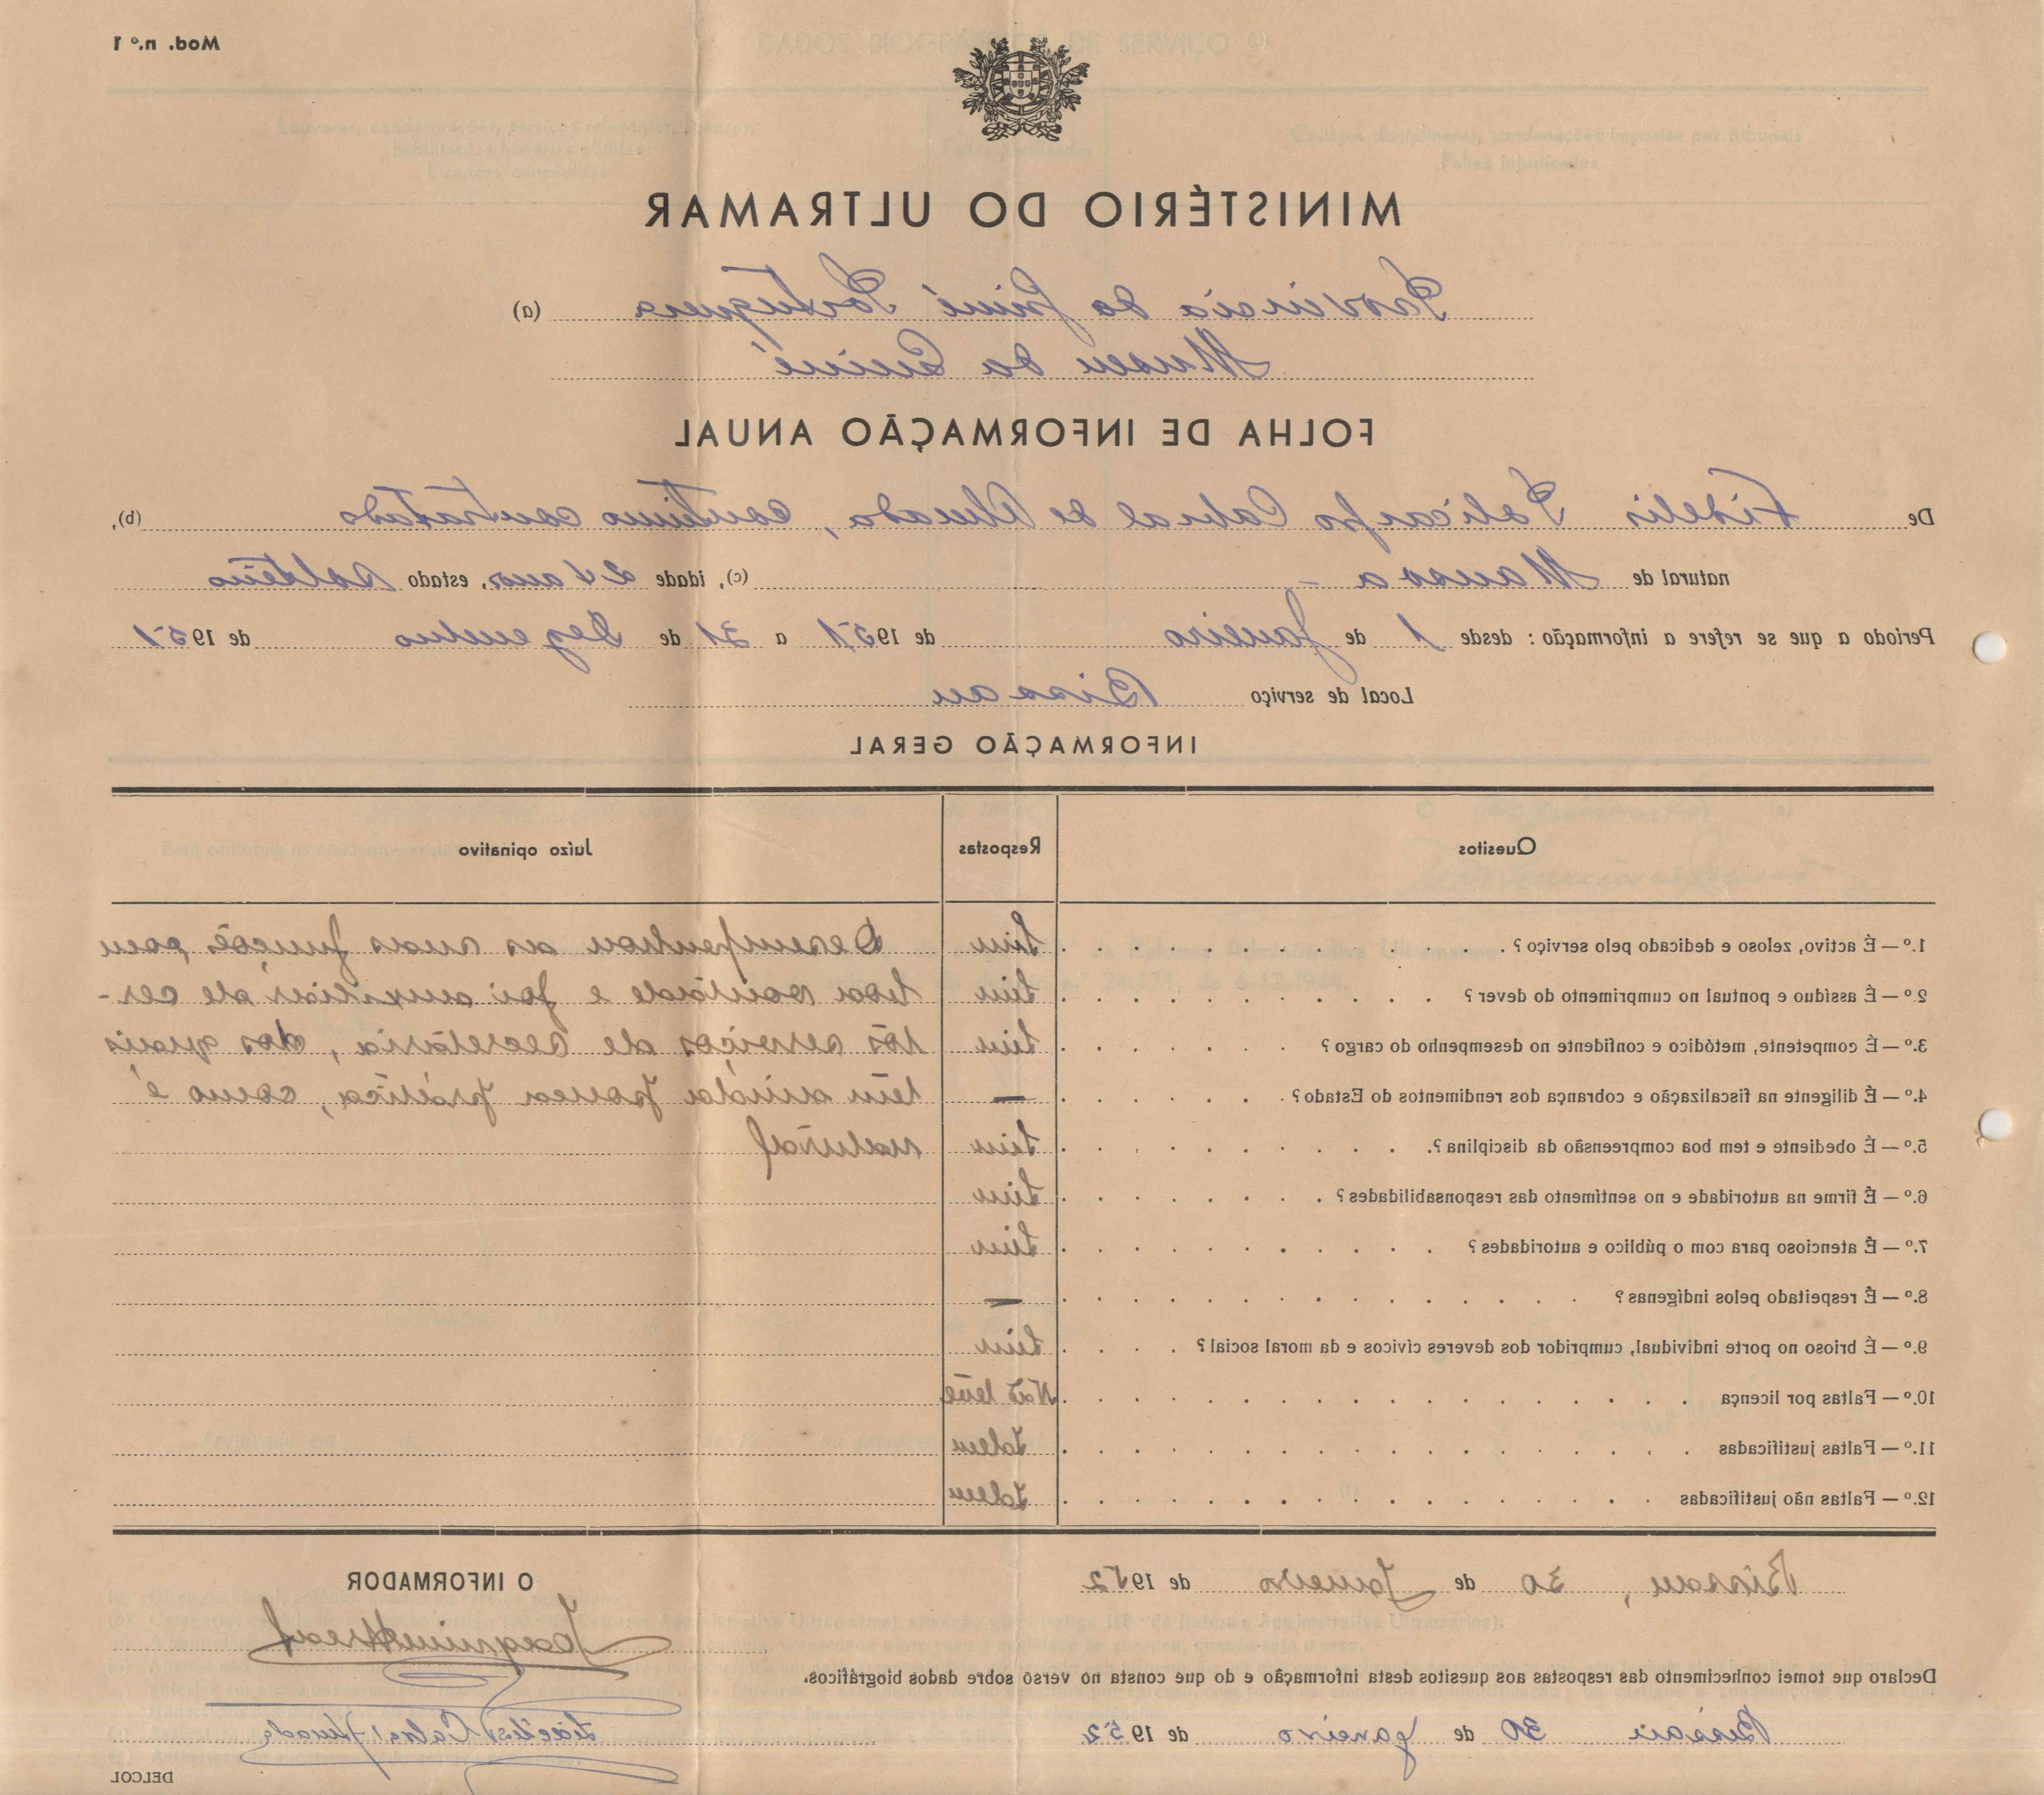 Mod. n.º 1
MINISTÉRIO DO ULTRAMAR
Provincia da Guiné Portuguesa (a)
Museu da Guiné
FOLHA DE INFORMAÇÃO ANUAL
De Fidelis Policarpo Cabral de Almada, contínuo contratado (b),
natural de Mansoa — (c), idade 24 anos, estado solteiro
Periodo a que se refere a informação: desde 1 de Janeiro de 1951 a 31 de Dezembro de 1951
Local de serviço Bissau
INFORMAÇÃO GERAL
Quesitos Respostas Juízo opinativo
1.º — É activo, zeloso e dedicado pelo serviço? Sim Desempenhou as suas funções com
2.º — É assíduo e pontual no cumprimento do dever? Sim boa vontade e foi auxiliar de cer-
3.º — É competente, metódico e confidente no desempenho do cargo? Sim tos serviços de secretaria, dos quais
4.º — É diligente na fiscalização e cobrança dos rendimentos do Estado? — tem ainda pouca prática, como é
5.º — É obediente e tem boa compreensão da disciplina? Sim natural
6.º — É firme na autoridade e no sentimento das responsabilidades? Sim
7.º — É atencioso para com o público e autoridades? Sim
8.º — É respeitado pelos indígenas? —
9.º — É brioso no porte individual, cumpridor dos deveres cívicos e da moral social? Sim
10.º — Faltas por licença Não teve
11.º — Faltas justificadas Idem
12.º — Faltas não justificadas Idem
Bissau, 30 de Janeiro de 1952
O INFORMADOR
Declaro que tomei conhecimento das respostas aos quesitos desta informação e do que consta no verso sobre dados biográficos.
Bissau 30 de Janeiro de 1952
Cabral Almada
DELCOL